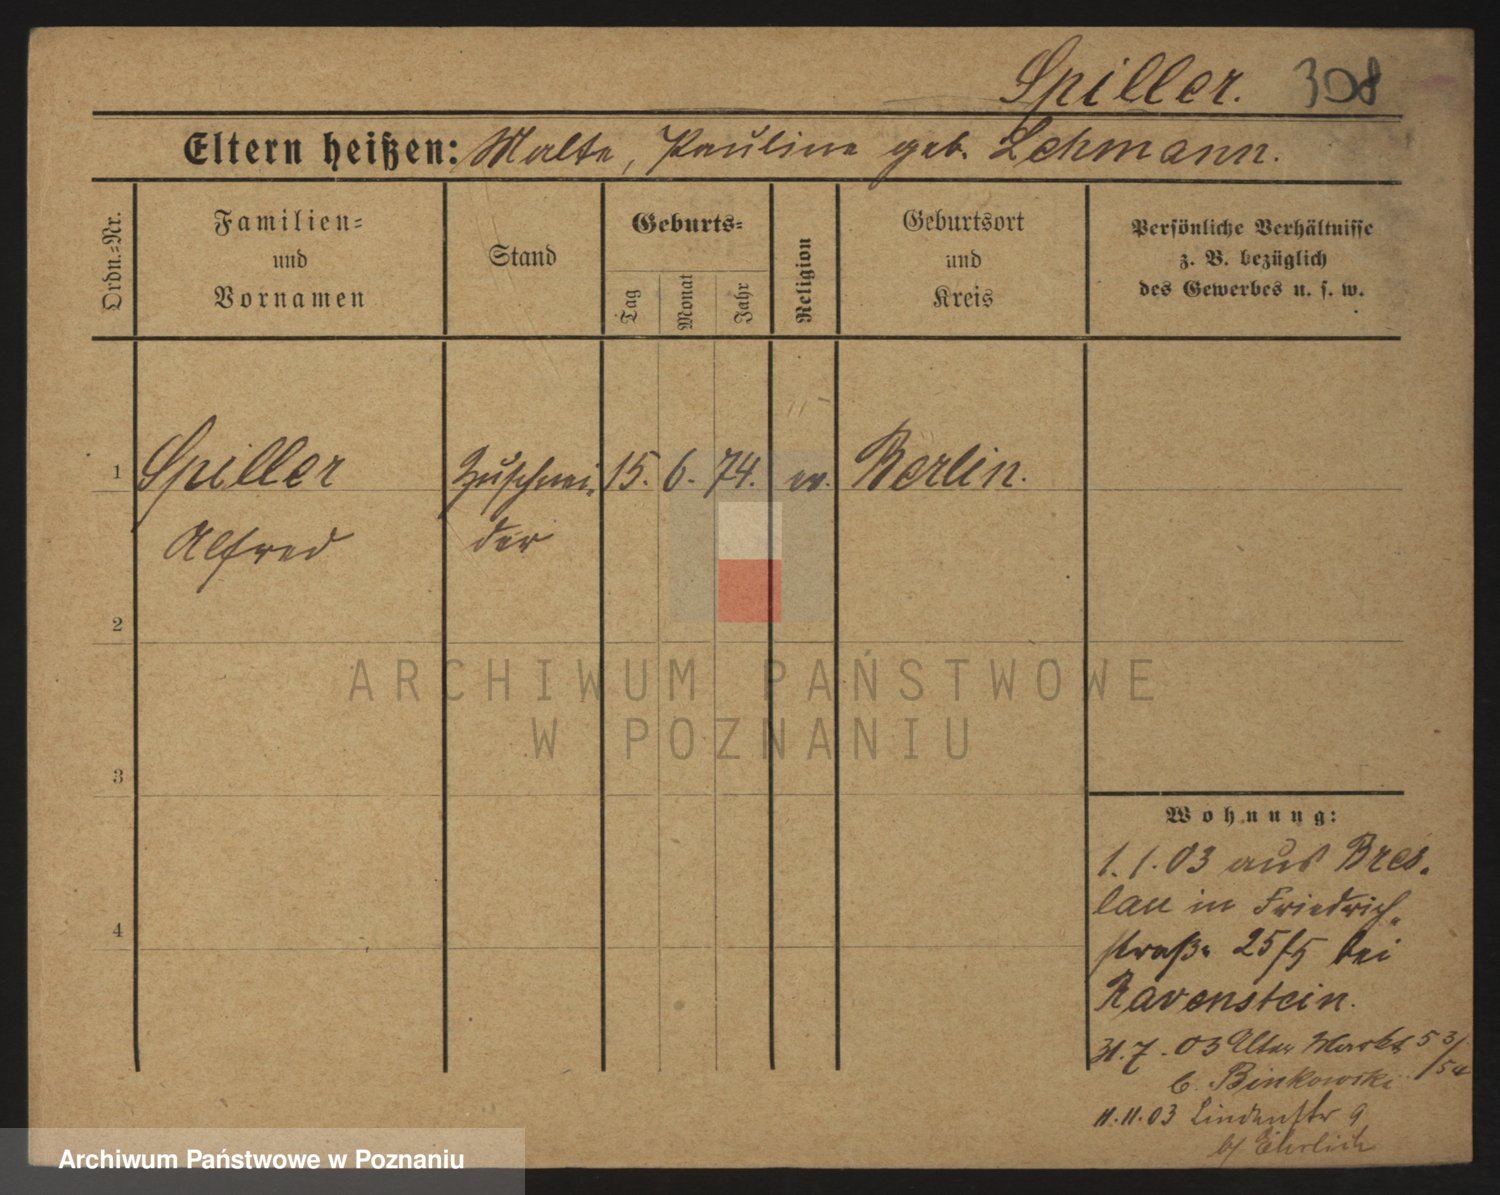 Spiller. 308
Eltern heißen: Malte, Pauline geb. Lehmann.
Ordn.-Nr.
Familien-
und
Vornamen
Stand
Geburts-
Tag
Monat
Jahr
Religion
Geburtsort
und
Kreis
Persönliche Verhältnisse
z. B. bezüglich
des Gewerbes u. s. w.
1 Spiller Zuschnei- 15. 6. 74. ev. Berlin.
Alfred der
2
3
4
ARCHIWUM PAŃSTWOWE
W POZNANIU
Wohnung:
1.1.03 aus Bres-
lau in Friedrich-
straße 25/5 bei
Ravenstein.
31.7.03 Alter Markt 53/54
b. Binkowski
11.11.03 Lindenstr 9
b/ Ehrlich
Archiwum Państwowe w Poznaniu